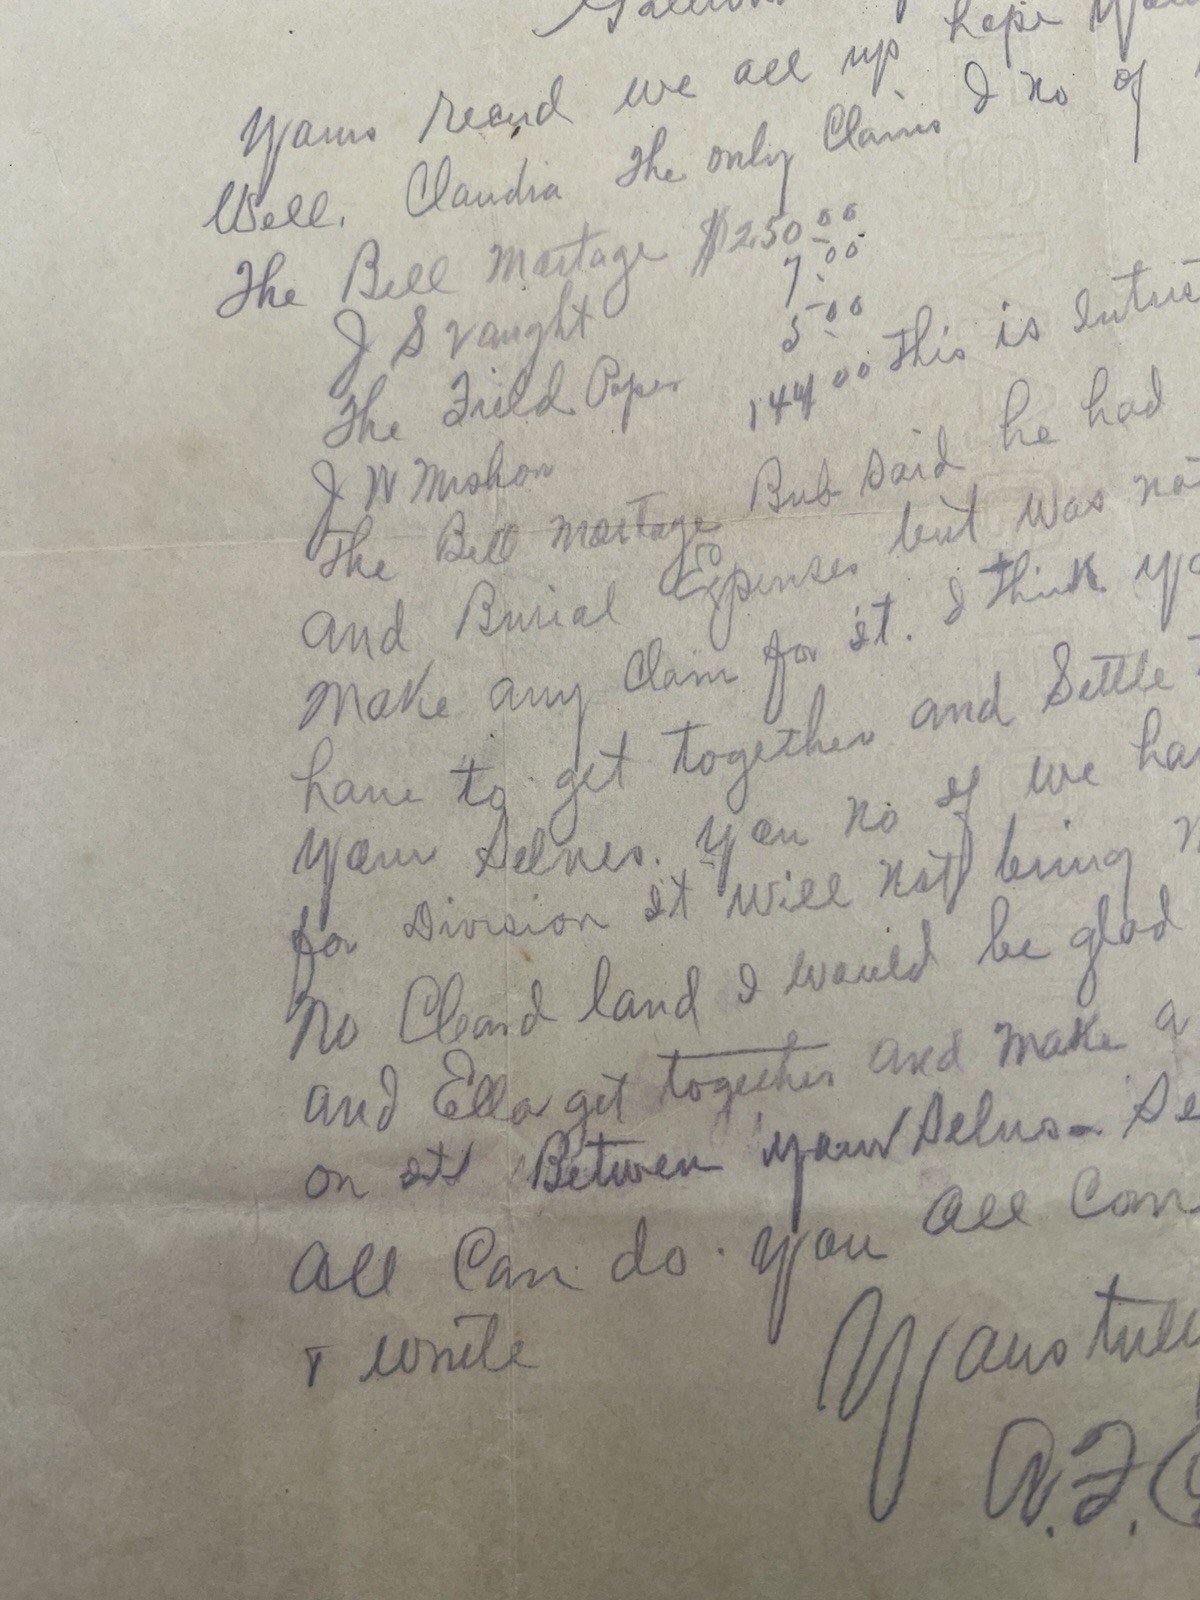 Yours Recud we all up hope
Well. Claudia The only Claims I no of
The Bell Mortage $250.00
J S Vaught 7.00
The Field Paper 5.00
J W 144.00 This is
The Bell Mortage Bub Said he had
and Burial Expenses but was not
Make any Claim for it. I think
have to get together and Settle
your Selves. you no if we
for Division it will not bring
No Cleard land I would be glad
and Ella get together and Make a
on it Between your Selves
all Can do. you all Com
& write
Yours truly
A.F.